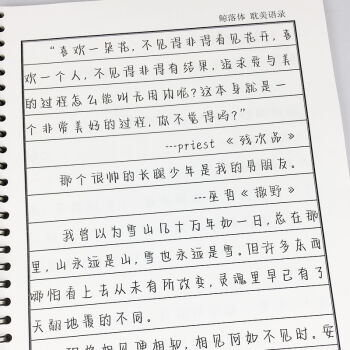 鲸落体 耽美语录
“喜欢一朵花，不见得非得看见花开，喜
欢一个人，不见得非得有结果，追求爱与美
的过程怎么能叫无用功呢？这本身就是一
个非常美好的过程，你不觉得吗？”
---priest《残次品》
那个很帅的长腿少年是我的男朋友。
---巫哲《撒野》
我曾以为雪山几十万年如一日，总在那
里，山永远是山，雪也永远是雪。但许多东西
哪怕看上去从未有所改变，灵魂里早已有了
天翻地覆的不同。
相见便相知，相见何如不见时。安